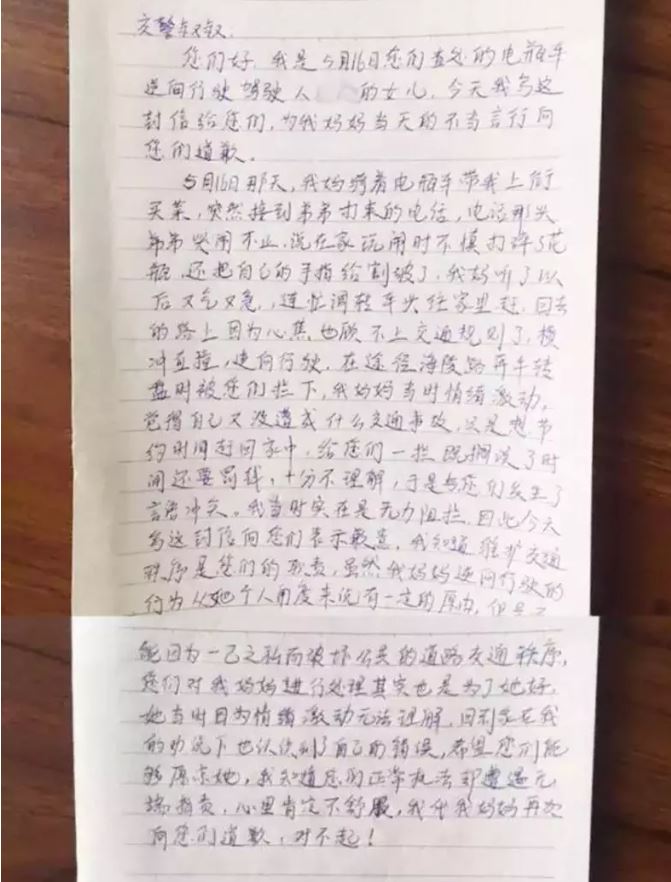 交警叔叔:
您们好,我是5月16日您们查处的电瓶车
逆向行驶驾驶人 的女儿,今天我写这
封信给您们,为我妈妈当天的不当言行向
您们道歉。
5月16日那天,我妈骑着电瓶车带我上街
买菜,突然接到弟弟打来的电话,电话那头
弟弟哭闹不止,说在家玩闹时不慎打碎了花
瓶,还把自己的手指给割破了,我妈听了以
后又气又急,连忙调转车头往家里赶,回去
的路上因为心焦也顾不上交通规则了,横
冲直撞,逆向行驶,在途径海陵路 转
盘时被您们拦下,我妈妈当时情绪激动,
觉得自己又没造成什么交通事故,只是想节
约时间赶回家中,给您们一拦既耽误了时
间还要罚钱,十分不理解,于是与您们发生了
言语冲突。我当时实在是无力阻拦,因此今天
写这封信向您们表示歉意,我知道维护交通
秩序是您们的职责,虽然我妈妈逆向行驶的
行为从她个人角度来说有一定的原因,但是不
能因为一己之私而破坏公共的道路交通秩序,
您们对我妈妈进行处理其实也是为了她好,
她当时因为情绪激动无法理解,回到家在我
的劝说下也认识到了自己的错误,希望您们能
够原谅她,我知道您们正常执法却遭遇无
端指责,心里肯定不舒服,我代我妈妈再次
向您们道歉,对不起!